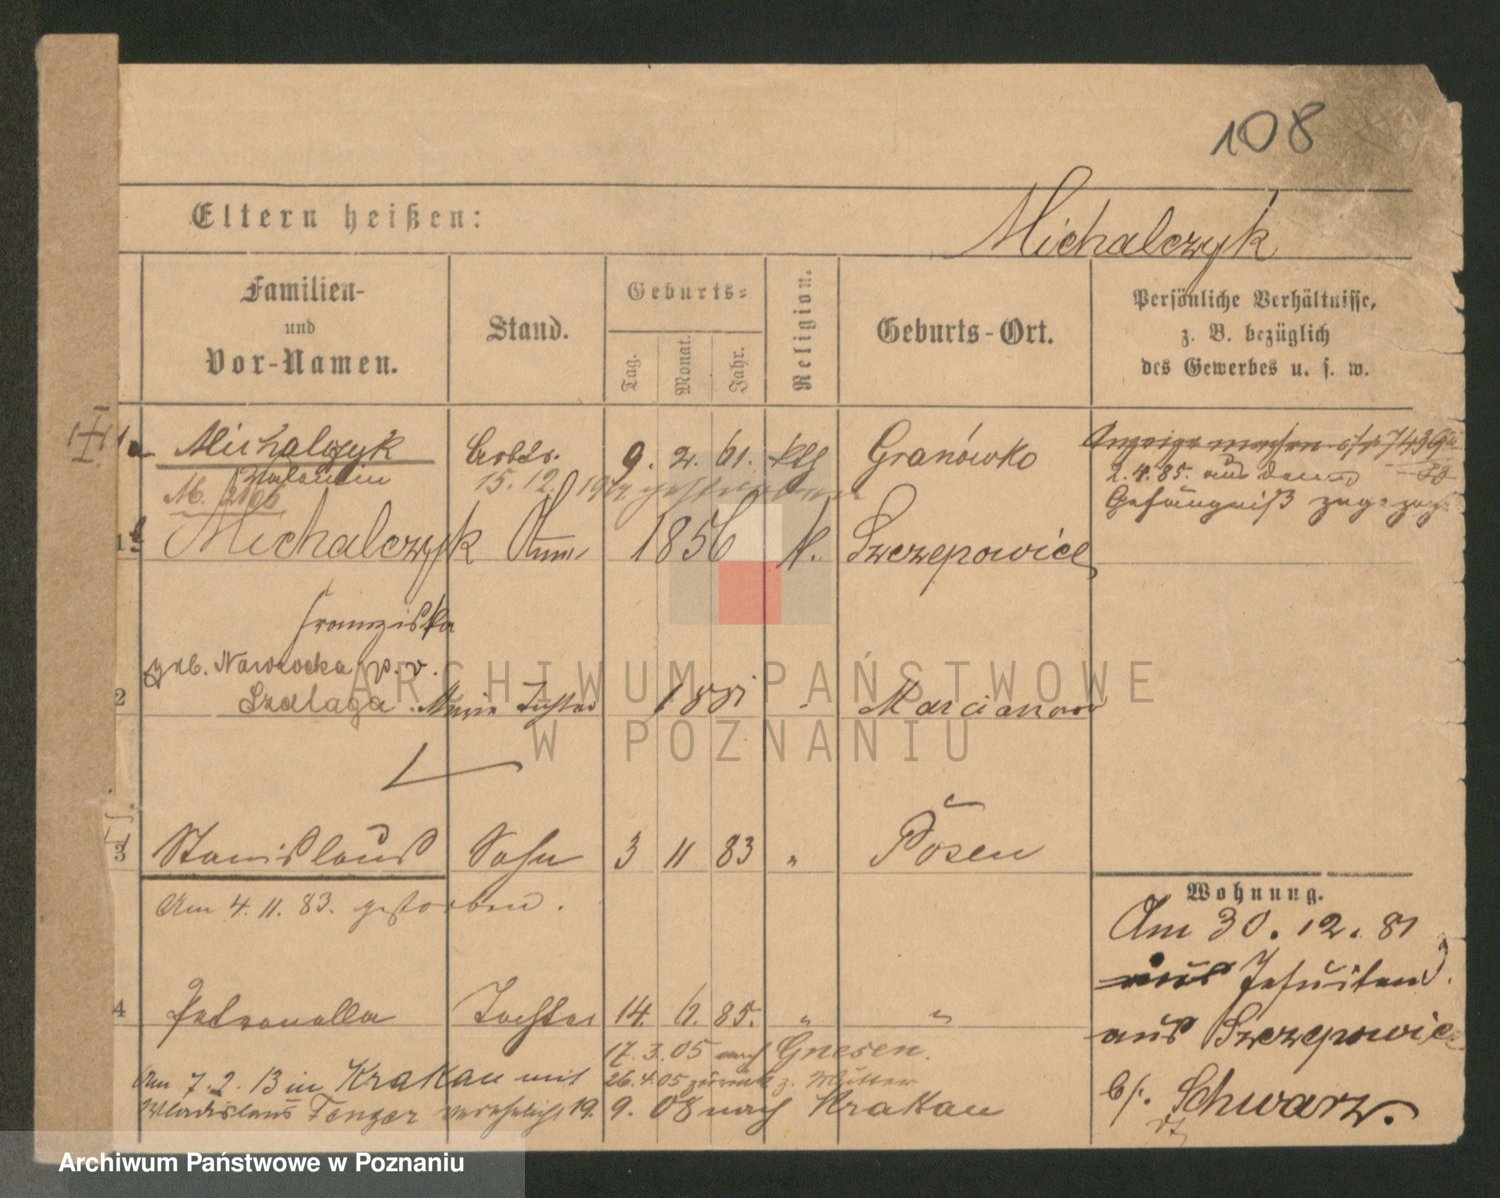 108
Eltern heißen:
Michalczyk
Familien-
und
Vor-Namen.
Stand.
Geburts-
Tag.
Monat.
Jahr.
Religion.
Geburts-Ort.
Persönliche Verhältnisse,
z. B. bezüglich
des Gewerbes u. s. w.
1a Michalczyk 9. 2. 61. kth Granówko
Valentin
15. 12. gestorben
2. 4. 85. aus dem
Gefängniß
Michalczyk 1856 k. Szczepowice
Franziska
geb. Nawrocka p. v.
2 Szalaga Marie Tochter 1881 " Marcianowo
3 Stanislaus Sohn 3 11 83 " Posen
Am 4. 11. 83. gestorben.
4 Petronella Tochter 14. 6. 85. " "
17. 3. 05 nach Gnesen.
26. 4. 05 zurück z. Mutter
Am 7. 2. 13 in Krakau mit
Wladislaus Fenger verehelicht 19. 9. 08 nach Krakau
Wohnung.
Am 30. 12. 81
aus Jesuitenstr.
aus Szczepowice
b/. Schwarz.
ARCHIWUM PAŃSTWOWE
W POZNANIU
Archiwum Państwowe w Poznaniu